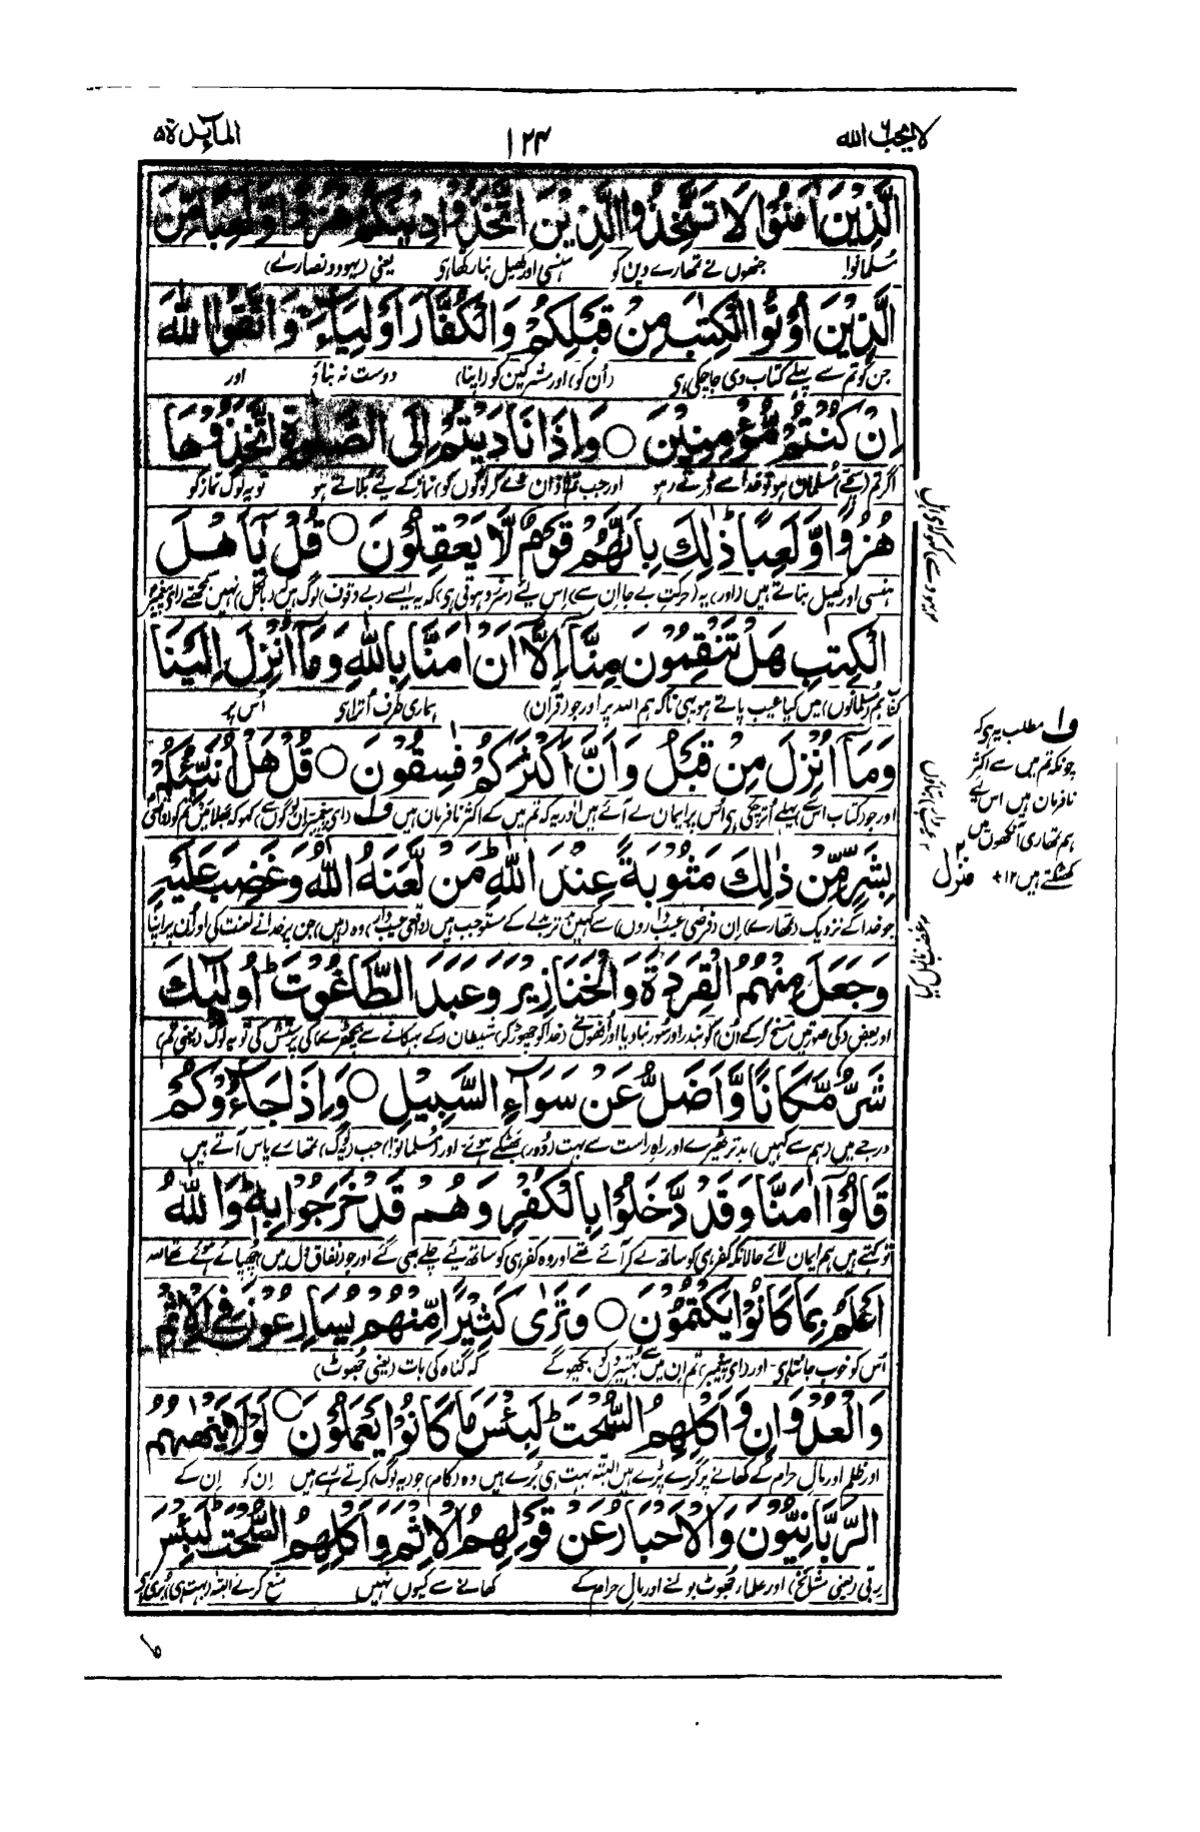 لا یحب اللہ ۶
۱۲۴
المآئدۃ ۵
الَّذِيْنَ اٰمَنُوْا لَا تَتَّخِذُوا الَّذِيْنَ اتَّخَذُوْا دِيْنَكُمْ هُزُوًا وَّلَعِبًا مِّنَ
مسلمانو! جنھوں نے تمھارے دین کو ہنسی اور کھیل بنا رکھا ہی یعنی (یہود و نصارےٰ)
الَّذِيْنَ اُوْتُوا الْكِتٰبَ مِنْ قَبْلِكُمْ وَالْكُفَّارَ اَوْلِيَآءَ ۚ وَاتَّقُوا اللّٰهَ
جن کو تم سے پہلے کتاب دی جا چکی ہی (اُن کو) اور مشرکین کو (اپنا) دوست نہ بناؤ اور
اِنْ كُنْتُمْ مُّؤْمِنِيْنَ ○ وَاِذَا نَادَيْتُمْ اِلَى الصَّلٰوةِ اتَّخَذُوْهَا
اگر تم (سچے) مسلمان ہو تو خدا سے ڈرتے رہو اور جب تم اذان دے کر لوگوں کو نماز کے لیے بلاتے ہو تو یہ لوگ نماز کو
هُزُوًا وَّلَعِبًا ؕ ذٰلِكَ بِاَنَّهُمْ قَوْمٌ لَّا يَعْقِلُوْنَ ○ قُلْ يٰٓاَهْلَ
ہنسی اور کھیل بناتے ہیں (اور) یہ (حرکتِ بے جا ان سے) اِس لیے (سرزد ہوتی ہی) کہ یہ ایسے (بے وقوف) لوگ ہیں (بالکل) نہیں سمجھتے (ای پیغمبر
الْكِتٰبِ هَلْ تَنْقِمُوْنَ مِنَّآ اِلَّآ اَنْ اٰمَنَّا بِاللّٰهِ وَمَآ اُنْزِلَ اِلَيْنَا
ہم مسلمانوں) میں کیا عیب پاتے ہو یہی نا کہ ہم اللہ پر اور جو (قرآن) ہماری طرف اُترا ہی اُس پر
وَمَآ اُنْزِلَ مِنْ قَبْلُ ۙ وَاَنَّ اَكْثَرَكُمْ فٰسِقُوْنَ ○ قُلْ هَلْ اُنَبِّئُكُمْ
اور جو (کتاب اس سے) پہلے اُتر چکی ہی اُس پر ایمان لے آئے ہیں اور یہ کہ تم میں کے اکثر نافرمان ہیں ف۱ (ای پیغمبر اِن لوگوں سے) کہو کہ بھلا میں تم کو
بِشَرٍّ مِّنْ ذٰلِكَ مَثُوْبَةً عِنْدَ اللّٰهِ ؕ مَنْ لَّعَنَهُ اللّٰهُ وَغَضِبَ عَلَيْهِ
جو خدا کے نزدیک (تمھارے) اِن (فرضی عیب داروں) سے کہیں بدتر بدلے کے مستوجب ہیں (واقعی عیب دار) وہ (ہیں) جن پر خدا نے لعنت کی اور اُن پر اپنا
وَجَعَلَ مِنْهُمُ الْقِرَدَةَ وَالْخَنَازِيْرَ وَعَبَدَ الطَّاغُوْتَ ؕ اُولٰٓئِكَ
اور بعض (کی صورتیں مسخ کر کے اُن) کو بندر اور سُور بنا دیا اور اُنھوں نے (خدا کو چھوڑ کر) شیطان (کے بہکانے سے بچھڑے) کی پرستش کی تو یہ لوگ (یعنی تم)
شَرٌّ مَّكَانًا وَّاَضَلُّ عَنْ سَوَآءِ السَّبِيْلِ ○ وَاِذَا جَآءُوْكُمْ
درجے میں (ہم سے کہیں) بدتر ٹھیرے اور راہِ راست سے بہت (دُور) بھٹکے ہوئے۔ اور (مسلمانو!) جب (یہ لوگ) تمھارے پاس آتے ہیں
قَالُوْٓا اٰمَنَّا وَقَدْ دَّخَلُوْا بِالْكُفْرِ وَهُمْ قَدْ خَرَجُوْا بِهٖ ؕ وَاللّٰهُ
تو کہتے ہیں ہم ایمان لائے حالانکہ کفر ہی کو ساتھ لے کر آئے تھے اور وہ کفر ہی کو ساتھ لیے چلے بھی گئے اور جو (نفاق دل میں) چھپائے ہوئے تھے اللہ
اَعْلَمُ بِمَا كَانُوْا يَكْتُمُوْنَ ○ وَتَرٰى كَثِيْرًا مِّنْهُمْ يُسَارِعُوْنَ فِى الْاِثْمِ
اُس کو خوب جانتا ہی۔ اور (ای پیغمبر) تم اِن میں سے بہتیروں کو دیکھو گے کہ گناہ کی بات (یعنی جھوٹ)
وَالْعُدْوَانِ وَاَكْلِهِمُ السُّحْتَ ؕ لَبِئْسَ مَا كَانُوْا يَعْمَلُوْنَ ○ لَوْلَا يَنْهٰىهُمُ
اور ظلم اور مالِ حرام کے کھانے پر گرے پڑتے ہیں البتہ بہت ہی بُرے ہیں وہ (کام) جو (یہ لوگ) کرتے رہے ہیں اِن کو اِن کے
الرَّبَّانِيُّوْنَ وَالْاَحْبَارُ عَنْ قَوْلِهِمُ الْاِثْمَ وَاَكْلِهِمُ السُّحْتَ ؕ لَبِئْسَ
ربّی (یعنی مشائخ) اور علماء جھوٹ بولنے اور مالِ حرام کے کھانے سے کیوں نہیں منع کرتے البتہ (بہت ہی) بُری ہی
ف۱ مطلب یہ ہی کہ
چونکہ تم میں سے اکثر
نافرمان ہیں اس لیے
ہم تمھاری آنکھوں میں
کھٹکتے ہیں ۱۲+
منزل ۲
غضب نازل کیا